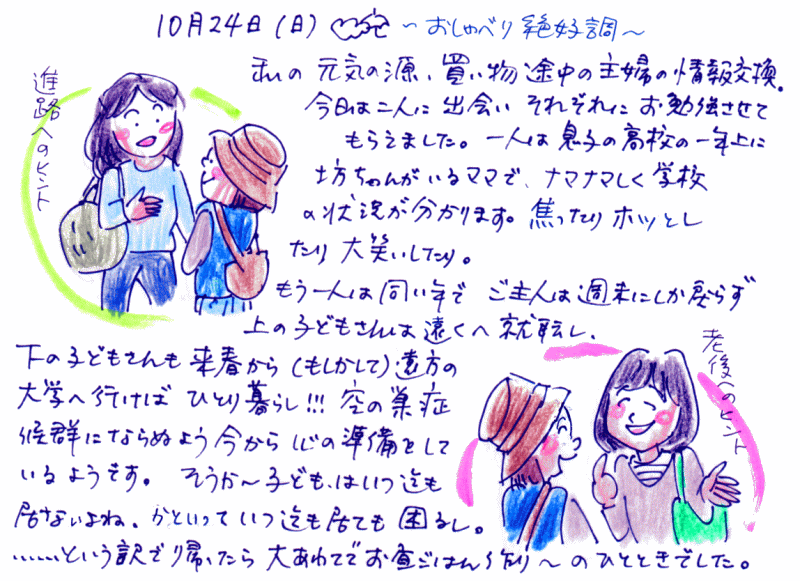 10月24日(日) ～おしゃべり絶好調～
私の元気の源、買い物途中の主婦の情報交換。
今日は二人に出会いそれぞれにお勉強させて
もらえました。一人は息子の高校の一年上に
坊ちゃんがいるママで、ナマナマしく学校
の状況が分かります。焦ったりホッとし
たり大笑いしたり。
もう一人は同い年で ご主人は週末にしか戻らず
上の子どもさんは遠くへ就職し、
下の子どもさんも来春から(もしかして)遠方の
大学へ行けばひとり暮らし!!! 空の巣症
候群にならぬよう今から心の準備をして
いるようです。 そうか～子どもはいつ迄も
居ないよね、かといっていつ迄も居ても困るし。
……という訳で帰ったら大あわてでお昼ごはん作り～のひとときでした。
進路へのヒント
老後へのヒント